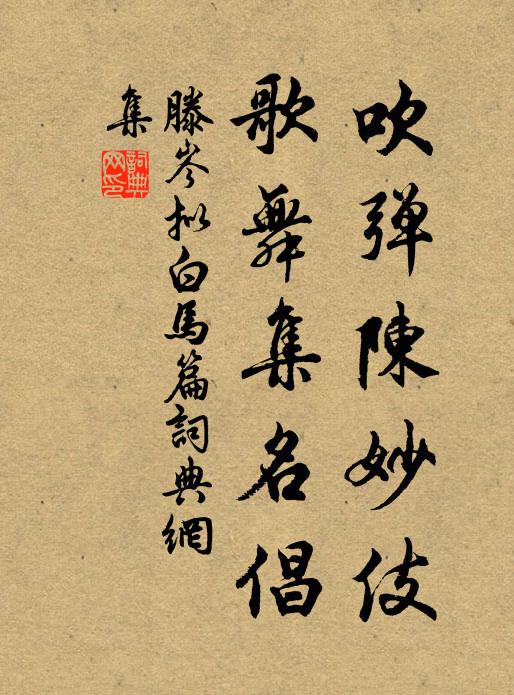 吹彈陳妙伎
歌舞集名倡
滕岑拟白馬篇詞典網
集
詞典
网印